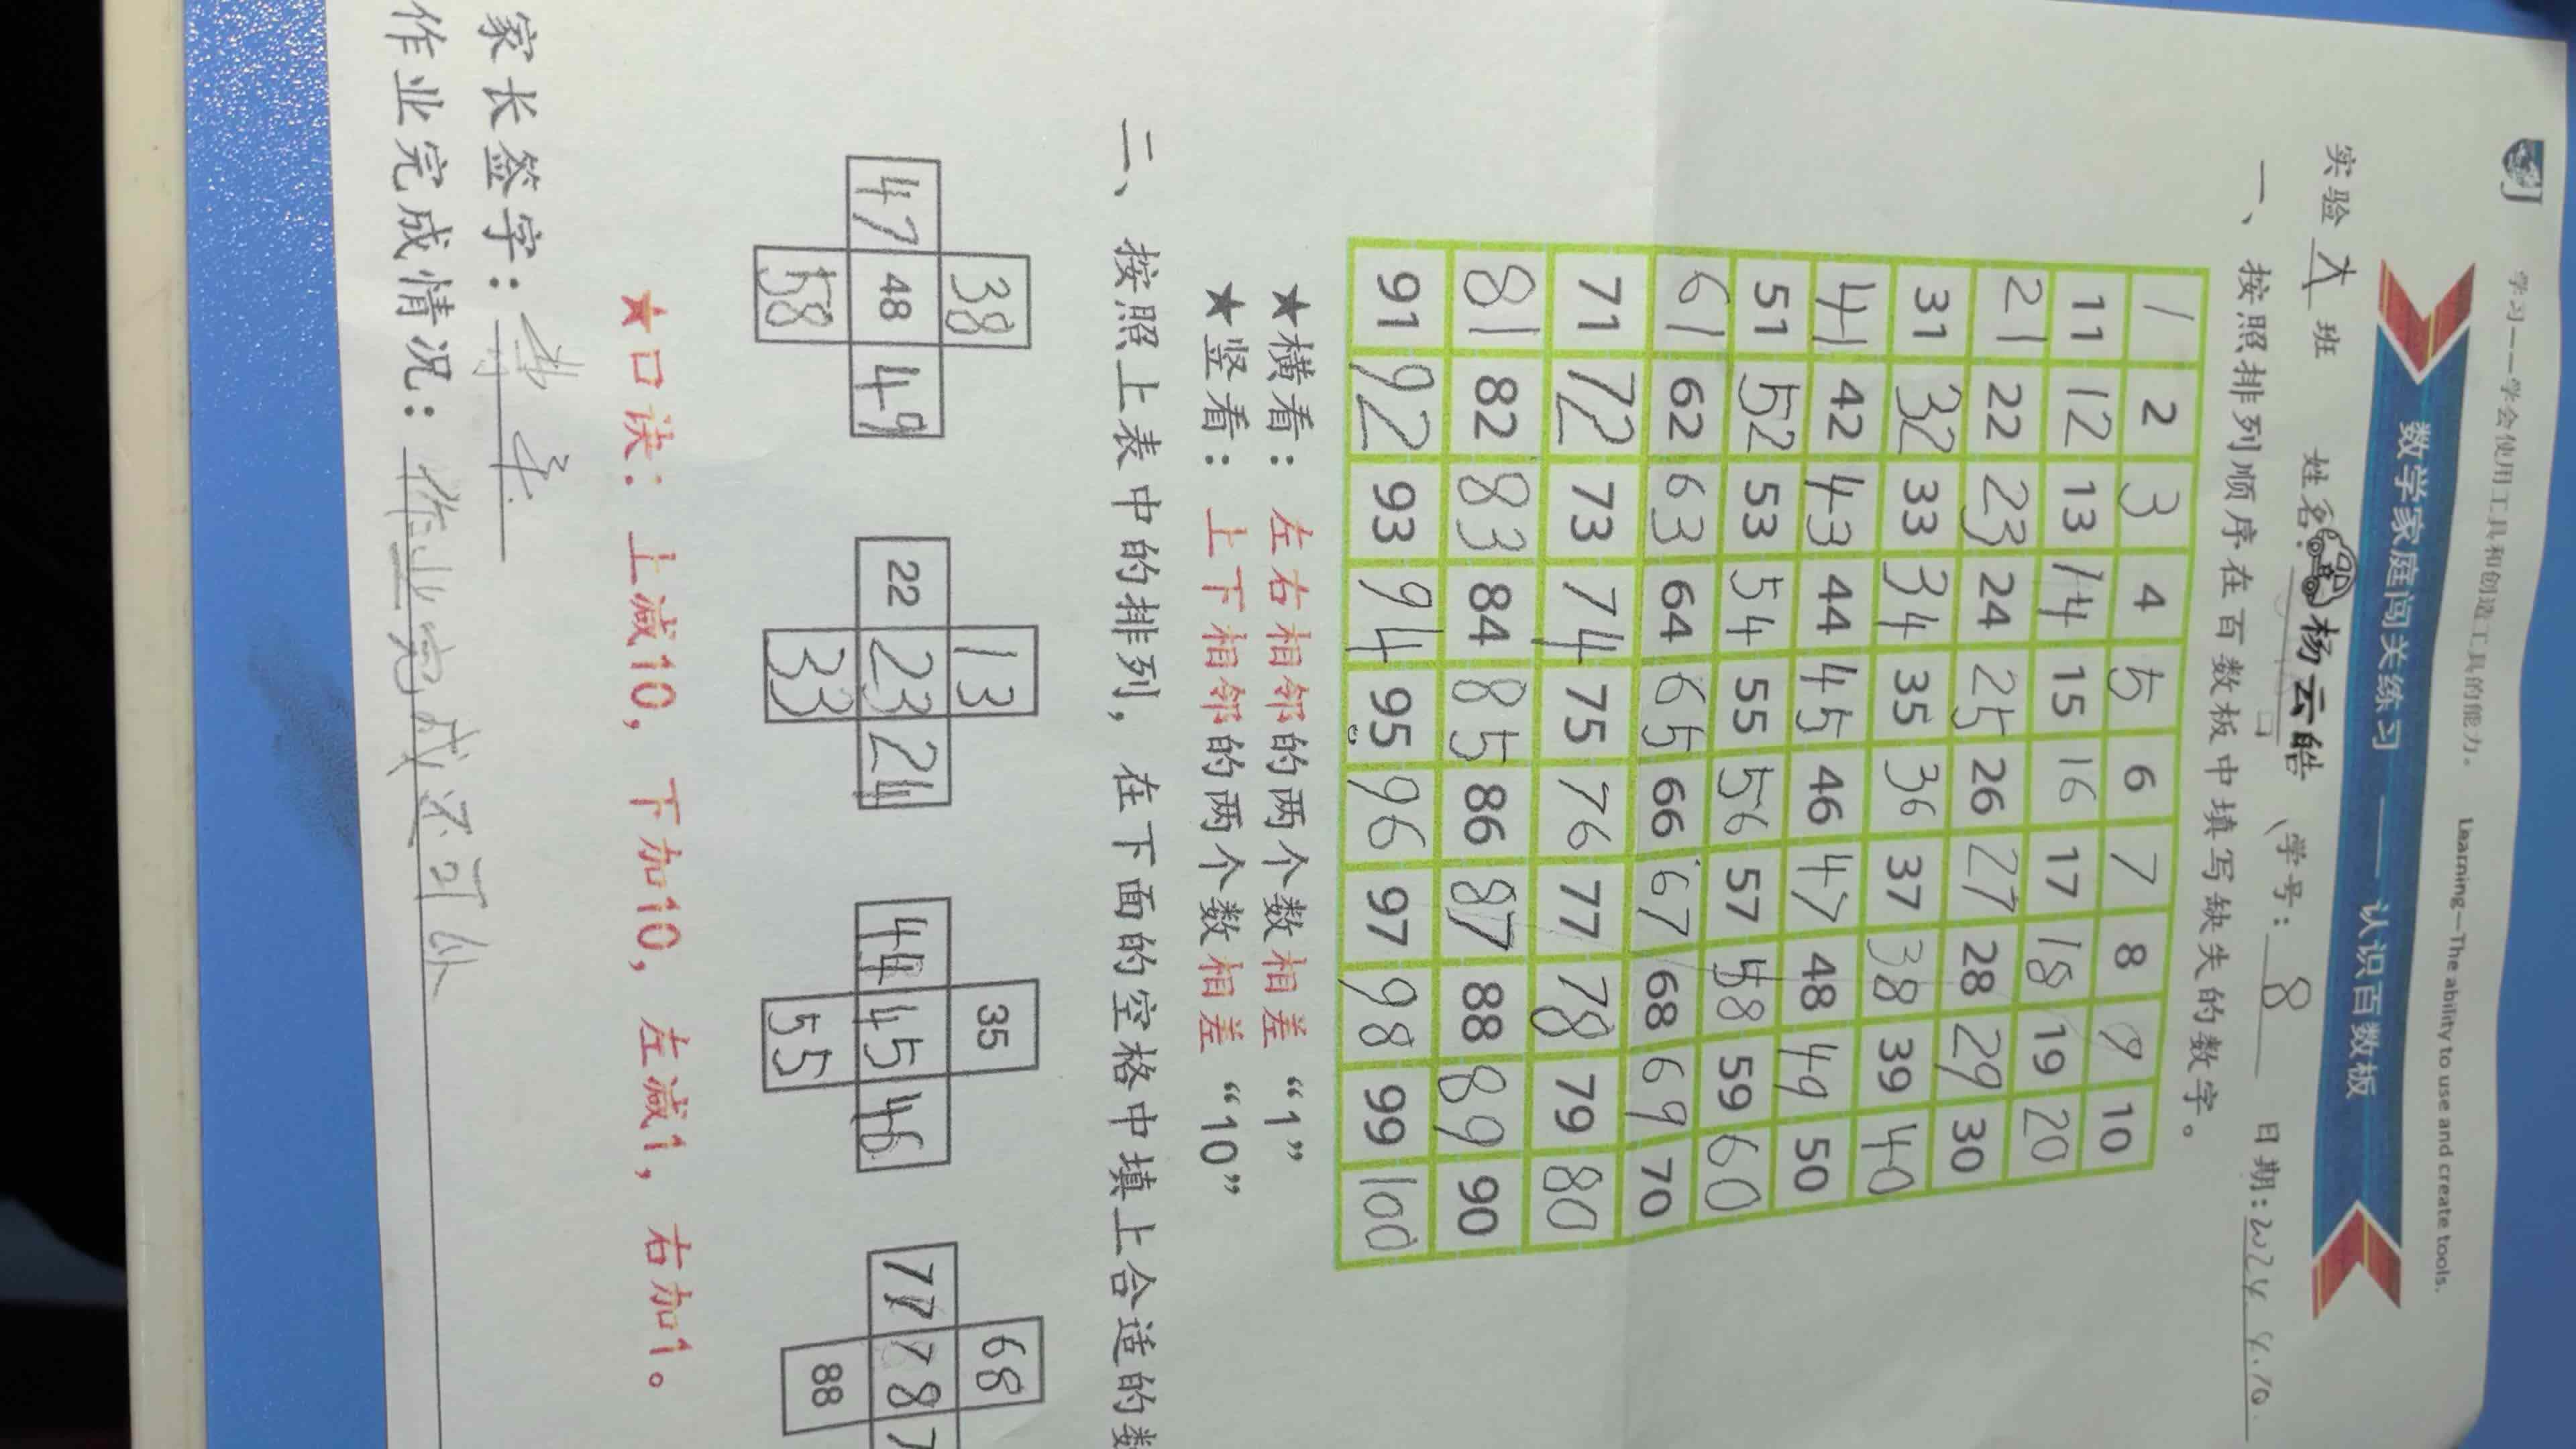 学习——学会使用工具和创造工具的能力。 Learning—The ability to use and create tools.
数学家庭闯关练习 —— 认识百数板
实验 大 班 姓名: 杨云皓 (学号: 8 日期: 2024.4.10.
一、按照排列顺序在百数板中填写缺失的数字。
1 2 3 4 5 6 7 8 9 10
11 12 13 14 15 16 17 18 19 20
21 22 23 24 25 26 27 28 29 30
31 32 33 34 35 36 37 38 39 40
41 42 43 44 45 46 47 48 49 50
51 52 53 54 55 56 57 58 59 60
61 62 63 64 65 66 67 68 69 70
71 72 73 74 75 76 77 78 79 80
81 82 83 84 85 86 87 88 89 90
91 92 93 94 95 96 97 98 99 100
★横看: 左右相邻的两个数相差 “1”
★竖看: 上下相邻的两个数相差 “10”
二、按照上表中的排列, 在下面的空格中填上合适的数
38 13 35 68
47 48 49 22 23 24 44 45 46 77 78 7
58 33 55 88
★口诀: 上减10, 下加10, 左减1, 右加1。
家长签字:
作业完成情况: 作业完成还可以